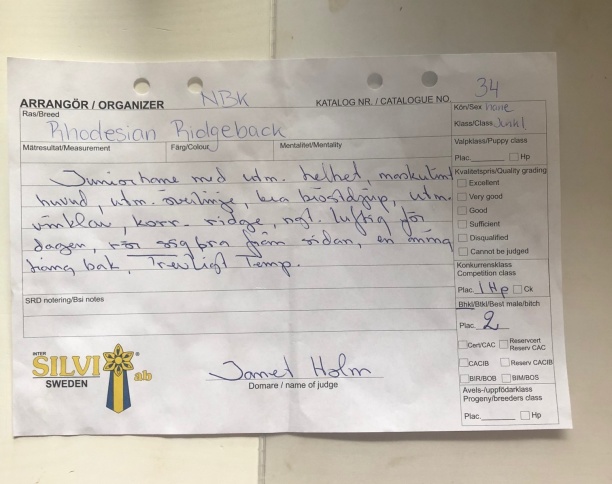 ARRANGÖR / ORGANIZER NBK KATALOG NR. / CATALOGUE NO. 34
Ras/Breed
Rhodesian Ridgeback
Mätresultat/Measurement Färg/Colour Mentalitet/Mentality
Juniorhane med utm. helhet, maskulint
huvud, utm. överlinje, bra bröstdjup, utm.
vinklar, korr. ridge, ngt. luftig för
dagen, rör sig bra från sidan, en aning
trång bak, Trevligt Temp.
SRD notering/Bsi notes
INTER
SILVI ®
SWEDEN ab
Janet Holm
Domare / name of judge
Kön/Sex hane
Klass/Class Junkl
Valpklass/Puppy class
Plac. Hp
Kvalitetspris/Quality grading
Excellent
Very good
Good
Sufficient
Disqualified
Cannot be judged
Konkurrensklass
Competition class
Plac. 1 Hp Ck
Bhkl/Btkl/Best male/bitch
Plac. 2
Cert/CAC Reservcert
Reserv CAC
CACIB Reserv CACIB
BIR/BOB BIM/BOS
Avels-/uppfödarklass
Progeny/breeders class
Plac. Hp